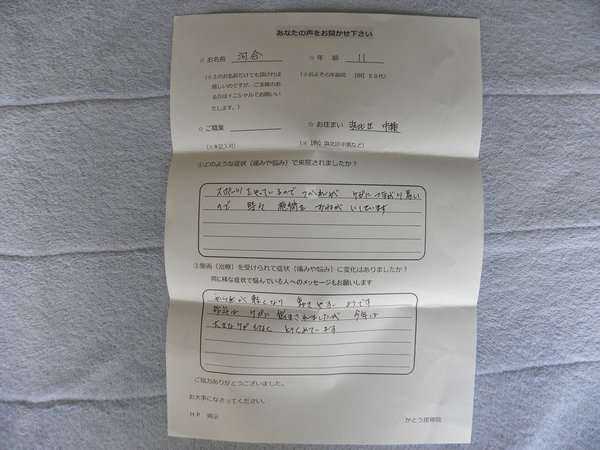 あなたの声をお聞かせ下さい
☆お名前 河合 ☆年齢 11
(※上のお名前だけでも頂ければ嬉しいのですが、ご支障のある方はイニシャルでお願いいたします。)
(※およその年齢可 【例】５０代)
☆ご職業 ☆お住まい 浜北区 中瀬
(※未記入可) (※【例】浜北区中瀬など)
①どのような症状（痛みや悩み）で来院されましたか？
スポーツをやっているので つかれが ケガに つながり易い
ので 時々 施術を おねがいしています
②施術（治療）を受けられて症状（痛みや悩み）に変化はありましたか？
同じ様な症状で悩んでいる人へのメッセージもお願いします
からだが 軽くなり 動きやすい ようです
昨年は ケガに 悩まされましたが 今年は
大きなケガもなく とてています
ご協力ありがとうございました。
お大事になさってください。
ＨＰ 掲示 かとう接骨院